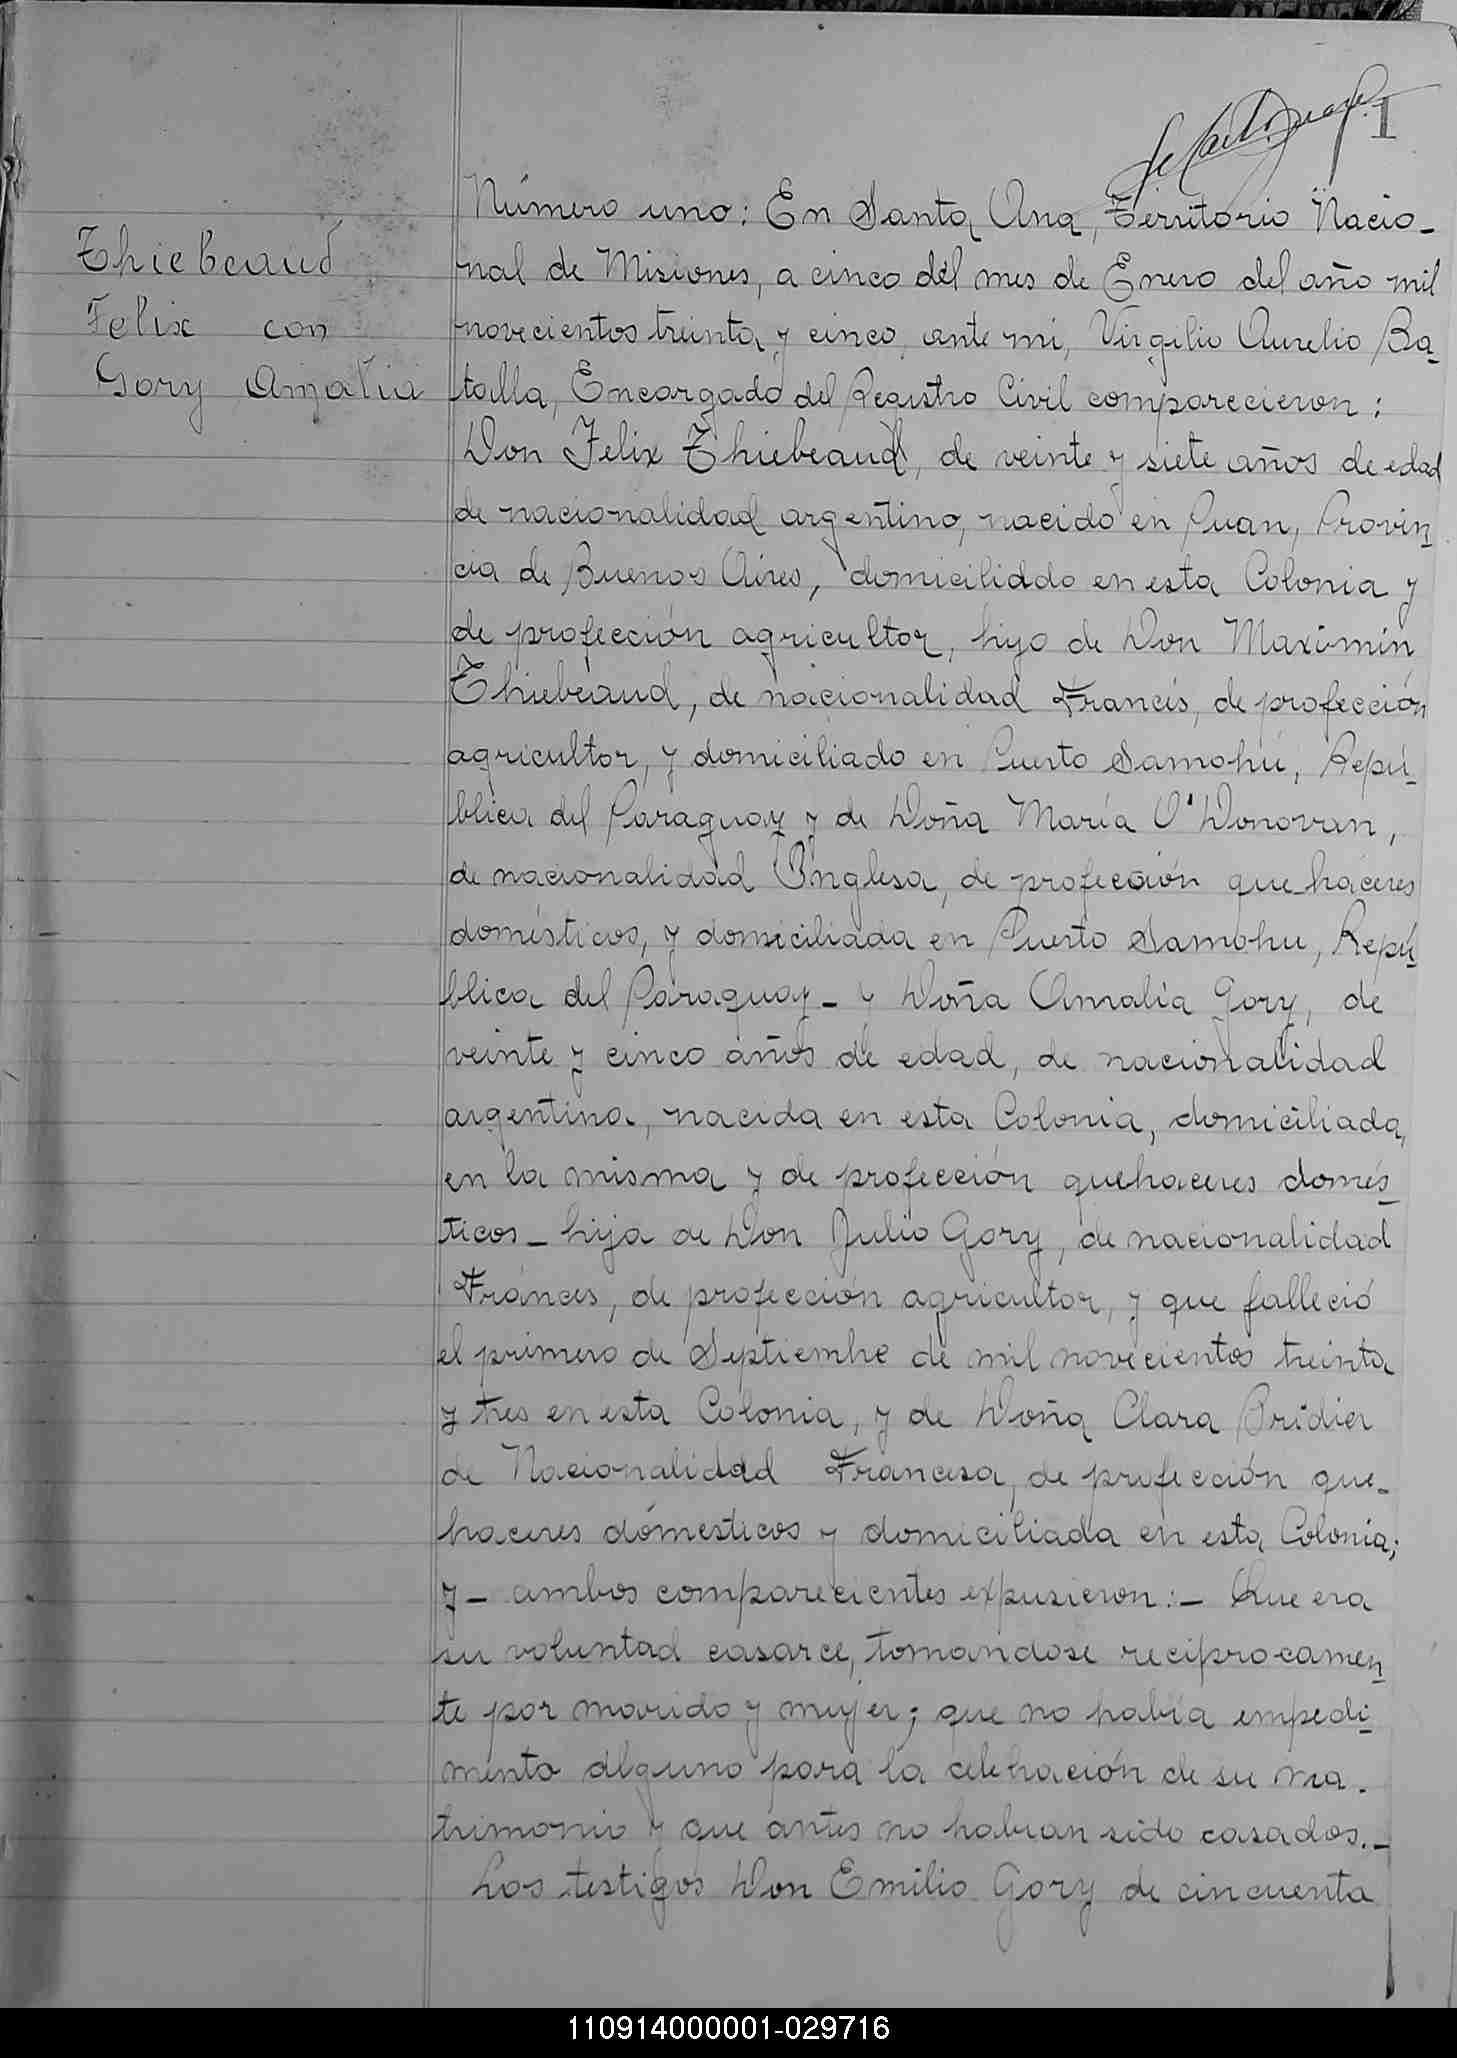 1
Número uno: En Santa Ana, Territorio Nacio-
Thiebeaud
Felix con
Gory Amalia
nal de Misiones, a cinco del mes de Enero del año mil
novecientos treinta y cinco, ante mi, Virgilio Aurelio Ba-
talla, Encargado del Registro Civil comparecieron:
Don Felix Thiebeaud, de veinte y siete años de edad
de nacionalidad argentino, nacido en Puan, Provin-
cia de Buenos Aires, domiciliado en esta Colonia y
de profección agricultor, hijo de Don Maximin
Thiebeaud, de nacionalidad Francés, de profección
agricultor, y domiciliado en Puerto Samohú, Repú-
blica del Paraguay y de Doña María O'Donovan,
de nacionalidad Inglesa, de profección que haceres
domésticos, y domiciliada en Puerto Samohu, Repú-
blica del Paraguay - y Doña Amalia Gory, de
veinte y cinco años de edad, de nacionalidad
argentina, nacida en esta Colonia, domiciliada,
en la misma y de profección quehaceres domés-
ticos - hija de Don Julio Gory, de nacionalidad
Francés, de profección agricultor, y que falleció
el primero de Septiembre de mil novecientos treinta
y tres en esta Colonia, y de Doña Clara Bridier
de Nacionalidad Francesa, de profección que-
haceres domésticos y domiciliada en esta Colonia;
y - ambos comparecientes expusieron: - Que era
su voluntad casarce, tomandose reciprocamen-
te por marido y mujer; que no había empedi-
mento alguno para la celebración de su ma-
trimonio y que antes no habian sido casados. -
Los testigos Don Emilio Gory de cincuenta
110914000001-029716